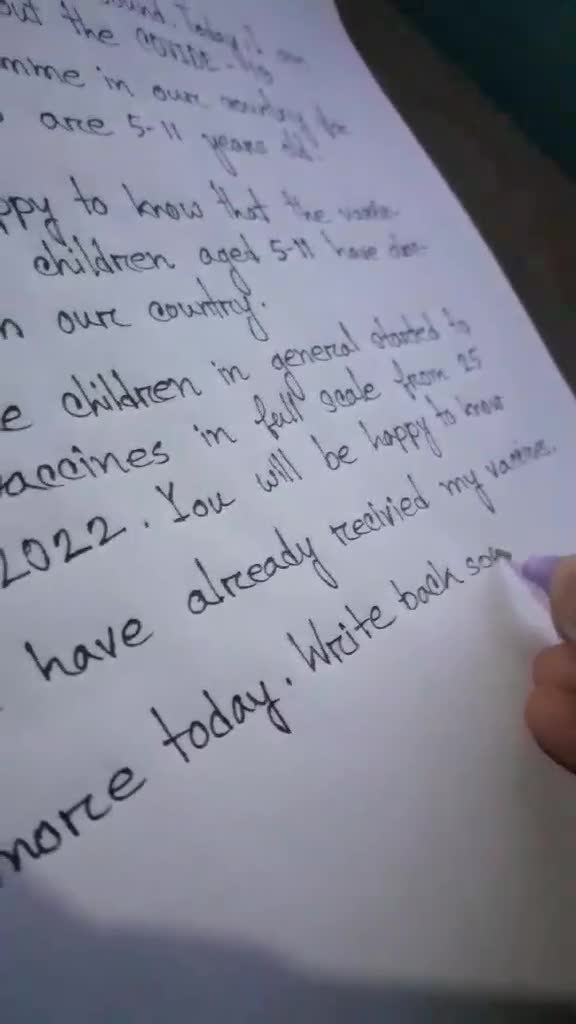 out the COVIDE-19
mme in our country for
are 5-11 years old.
ppy to know that the
children aged 5-11 have
n our country.
e children in general started to
accines in full scale from 25
2022. You will be happy to know
have already recivied my vaccines.
more today. Write back soo